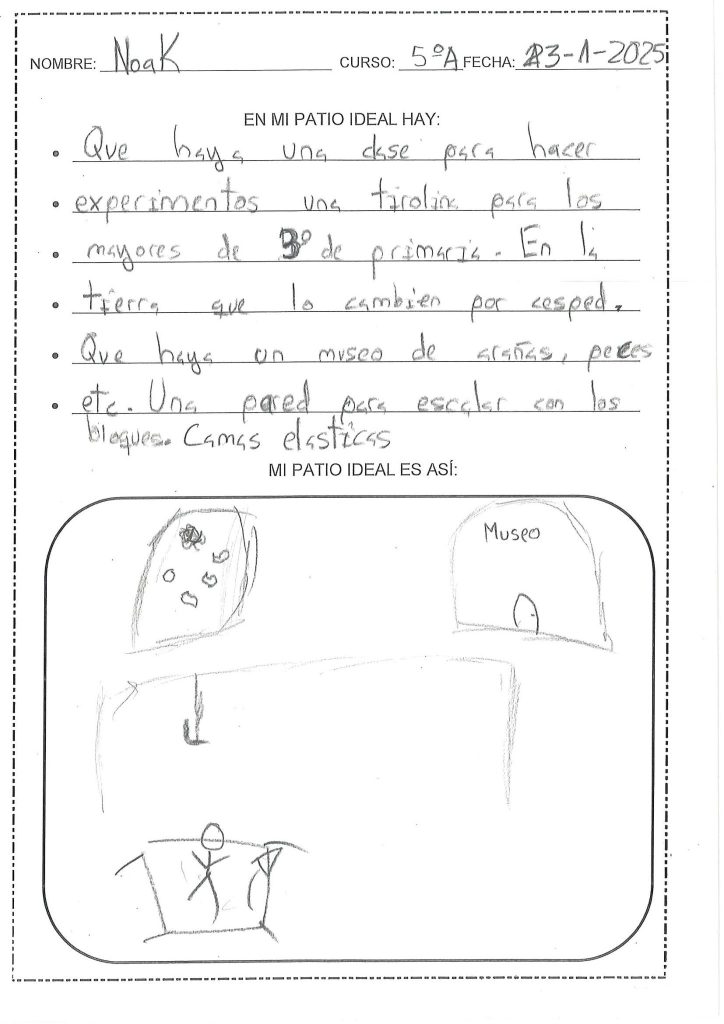 NOMBRE: Noa K CURSO: 5ºA FECHA: 23-1-2025
EN MI PATIO IDEAL HAY:
• Que haya una clase para hacer
• experimentos una tirolina para los
• mayores de 3º de primaria. En la
• tierra que lo cambien por cesped.
• Que haya un museo de arañas, peces
• etc. Una pared para escalar con los
bloques. Camas elasticas
MI PATIO IDEAL ES ASÍ:
Museo